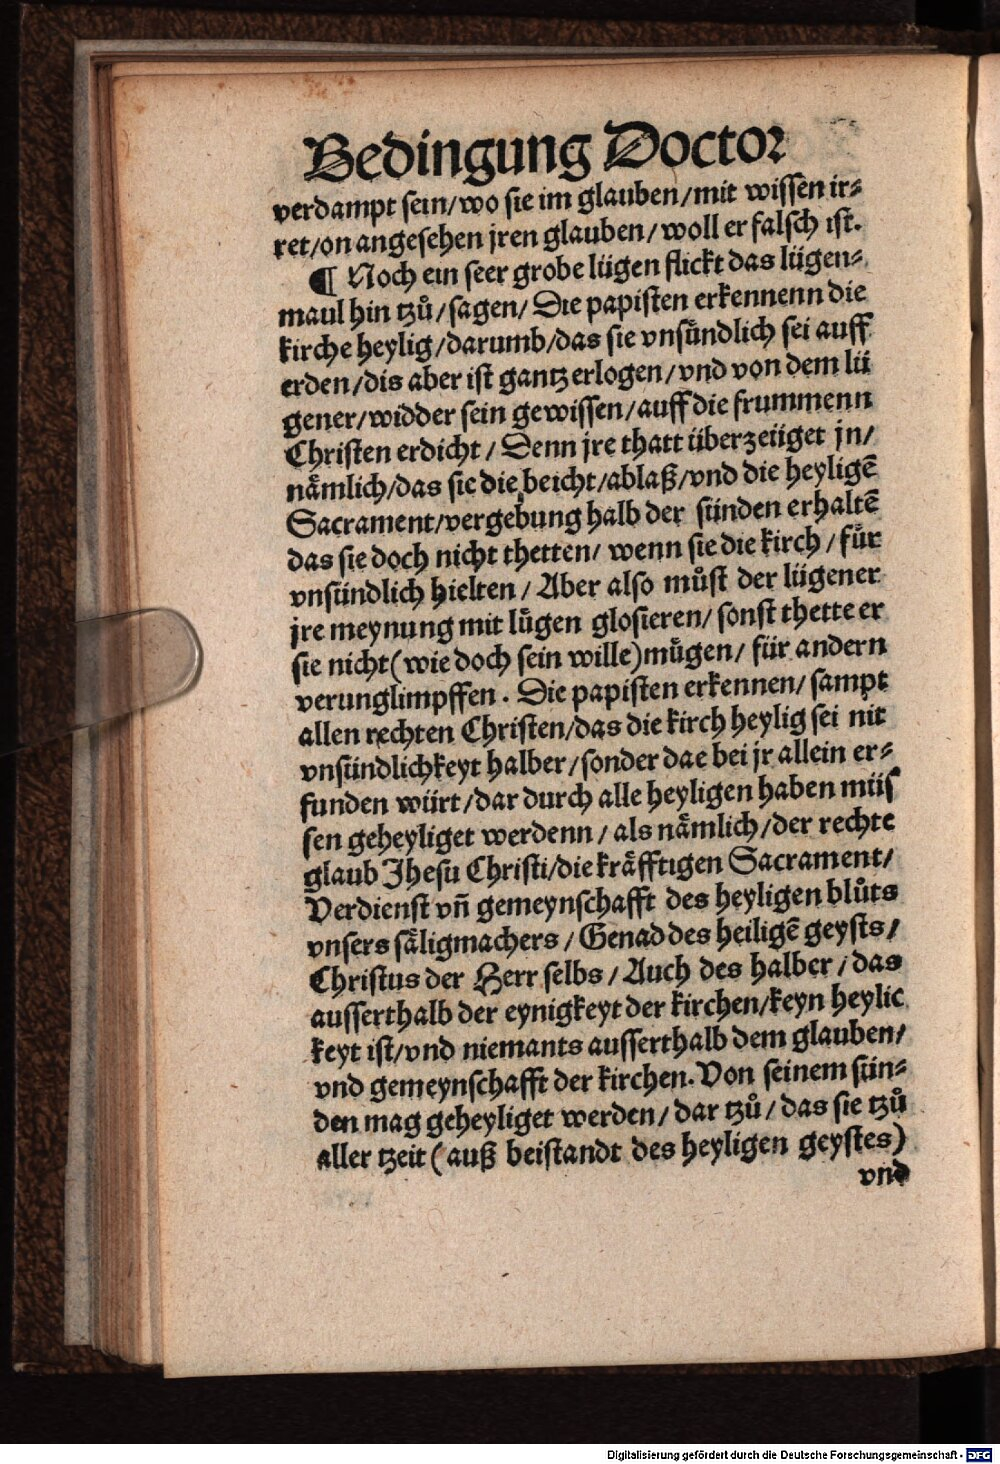 Bedingung Doctor
verdampt sein/wo sie im glauben/mit wissen ir⸗
ret/on angesehen jren glauben/woll er falsch ist.
¶ Noch ein seer grobe lügen flickt das lügen⸗
maul hin tzů/sagen/Die papisten erkennenn die
kirche heylig/darumb/das sie vnsündlich sei auff
erden/dis aber ist gantz erlogen/vnd von dem lü
gener/widder sein gewissen/auff die frummenn
Christen erdicht/Denn jre thatt überzeüget jn/
nämlich/das sie die beicht/ablaß/vnd die heyligē
Sacrament/vergebung halb der sünden erhaltē
das sie doch nicht thetten/wenn sie die kirch/für
vnsündlich hielten/Aber also můst der lügener
jre meynung mit lügen glosieren/sonst thette er
sie nicht(wie doch sein wille)mügen/für andern
verunglimpffen. Die papisten erkennen/sampt
allen rechten Christen/das die kirch heylig sei nit
vnsündlichkeyt halber/sonder dae bei jr allein er⸗
funden würt/dar durch alle heyligen haben müs
sen geheyliget werdenn/als nämlich/der rechte
glaub Jhesu Christi/die kräfftigen Sacrament/
Verdienst vñ gemeynschafft des heyligen blůts
vnsers säligmachers/Genad des heiligē geysts/
Christus der Herr selbs/Auch des halber/das
ausserthalb der eynigkeyt der kirchen/keyn heylic
keyt ist/vnd niemants ausserthalb dem glauben/
vnd gemeynschafft der kirchen.Von seinem sün⸗
den mag geheyliget werden/dar tzů/das sie tzů
aller tzeit(auß beistandt des heyligen geystes)
vnd
Digitalisierung gefördert durch die Deutsche Forschungsgemeinschaft - DFG